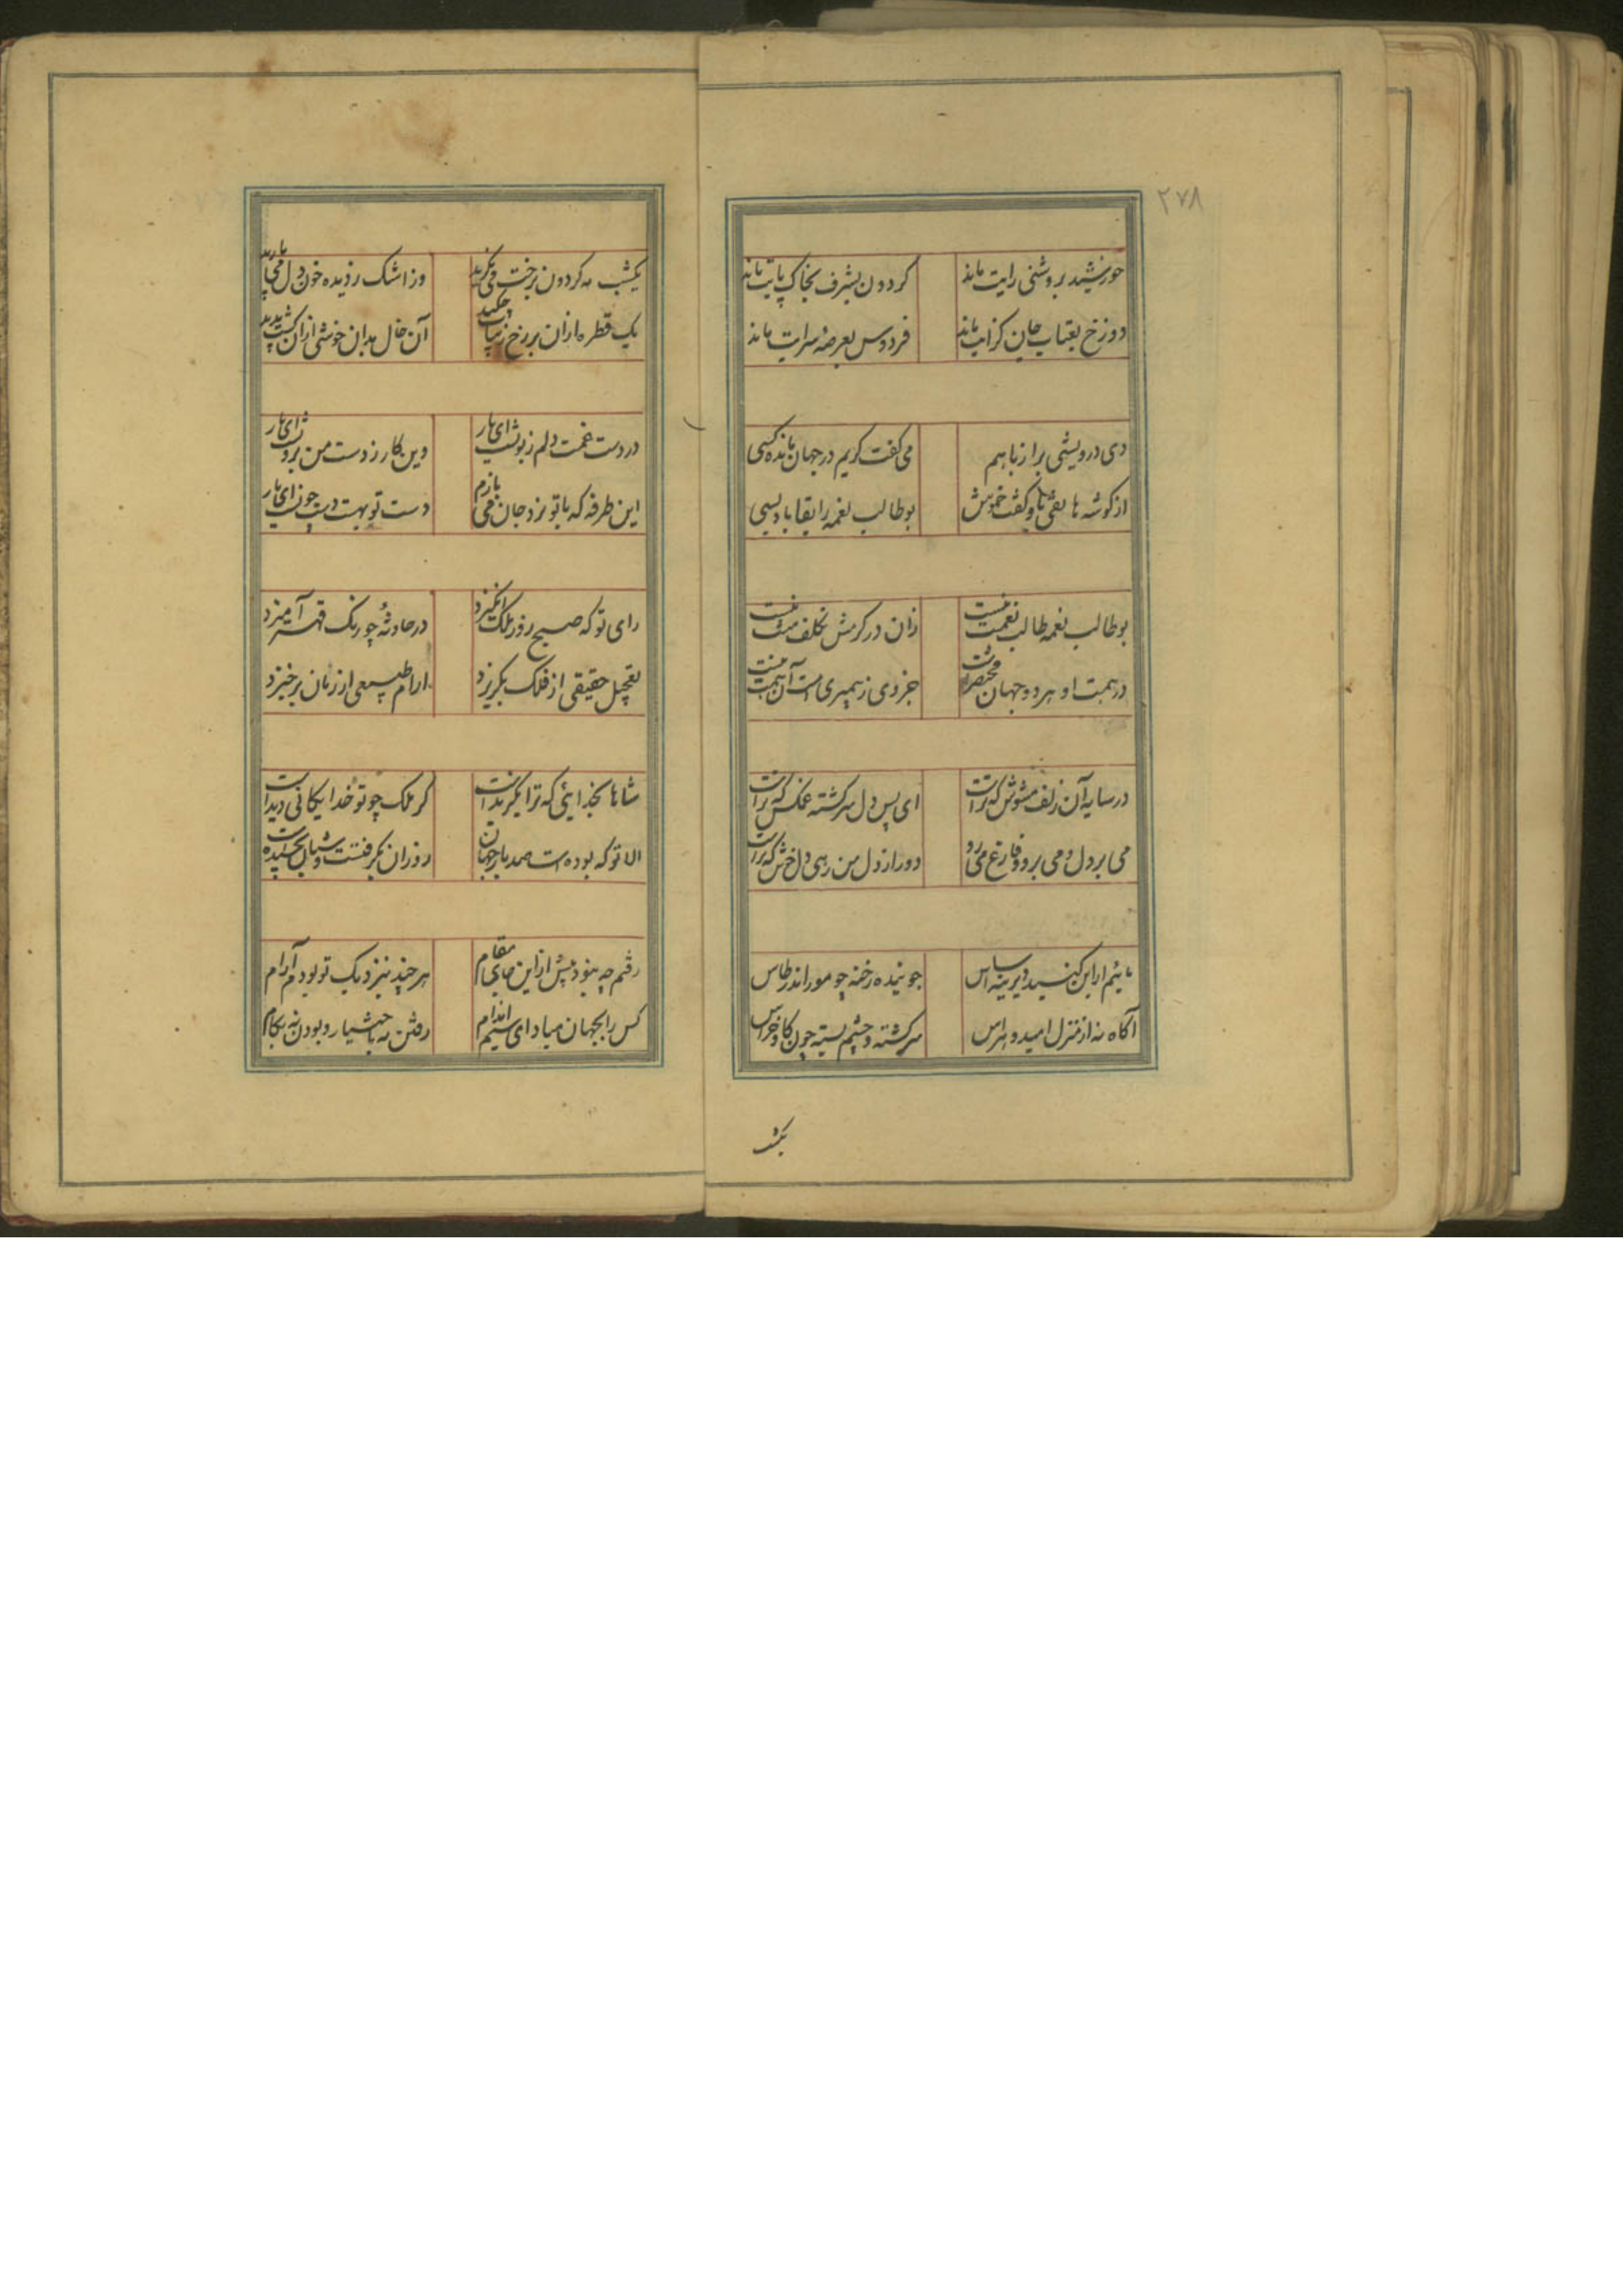 ۲۷۸
خورشید بروشنی رایت ماند گردون بشرف بخاک پایت ماند
دوزخ بعتاب جان گزایت ماند فردوس بعرصه سرایت ماند
دی درویشی براز باهم می گفت کریم در جهان مانده کسی
از گوشه هاتفی باو گفت خموش بوطالب نعمه را بقا باد بسی
بوطالب نعمه طالب نعمت نیست زان در کرمش تکلف منت نیست
در همت او هر دو جهان مختصر است جزوی ز پیمبری است آن همت نیست
در سایه آن زلف مشوش که تراست ای بس دل سرگشته غمکش که تراست
می بر دل و می برو و فارغ می رو دور از دل من زهی دل خوش که تراست
مائیم از این گنبد دیرینه اساس جوینده رخنه چو مور اندر طاس
آگاه نه از منزل امید و هراس سرگشته و چشم بسته چون گاو خراس
یکشب
یکشب مه گردون برخت می نگرید وز اشک ز دیده خون دل می بارید
یک قطره ازان بر رخ زیبات چکید آن خال بدان خوشی ازان گشت پدید
در دست غمت دلم زبونست ای یار وین کار ز دست من برونست ای یار
این طرفه که با تو نرد جان می بازم دست تو بهست دست چونست ای یار
رای تو که صبح روز ملک انگیزد در حادثه چو رنگ قهر آمیزد
تعجیل حقیقی از فلک بگریزد ارام طبیعی از زمان برخیزد
شاها بخدایئی که ترا بگزیدست گر ملک چو تو خدایگانی دیدست
الا تو که بوده است صد بار جهان روزان بگرفتست و شبان بخشیدست
رفتم چه بنود بیش ازین جای مقام هر چند بنزدیک تو بودم آرام
کس را بجهان مباد ای سیم اندام رفتن نه باختیار و بودن نه بکام